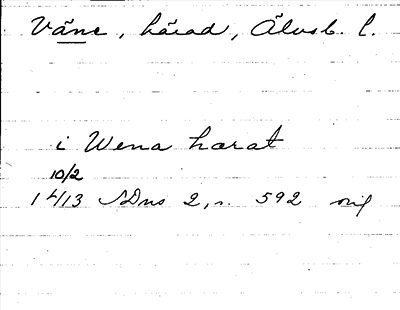 Väne, härad, Älvsb. l.
i Wena hærat
10/2
1413 SDns 2, s. 592 orig